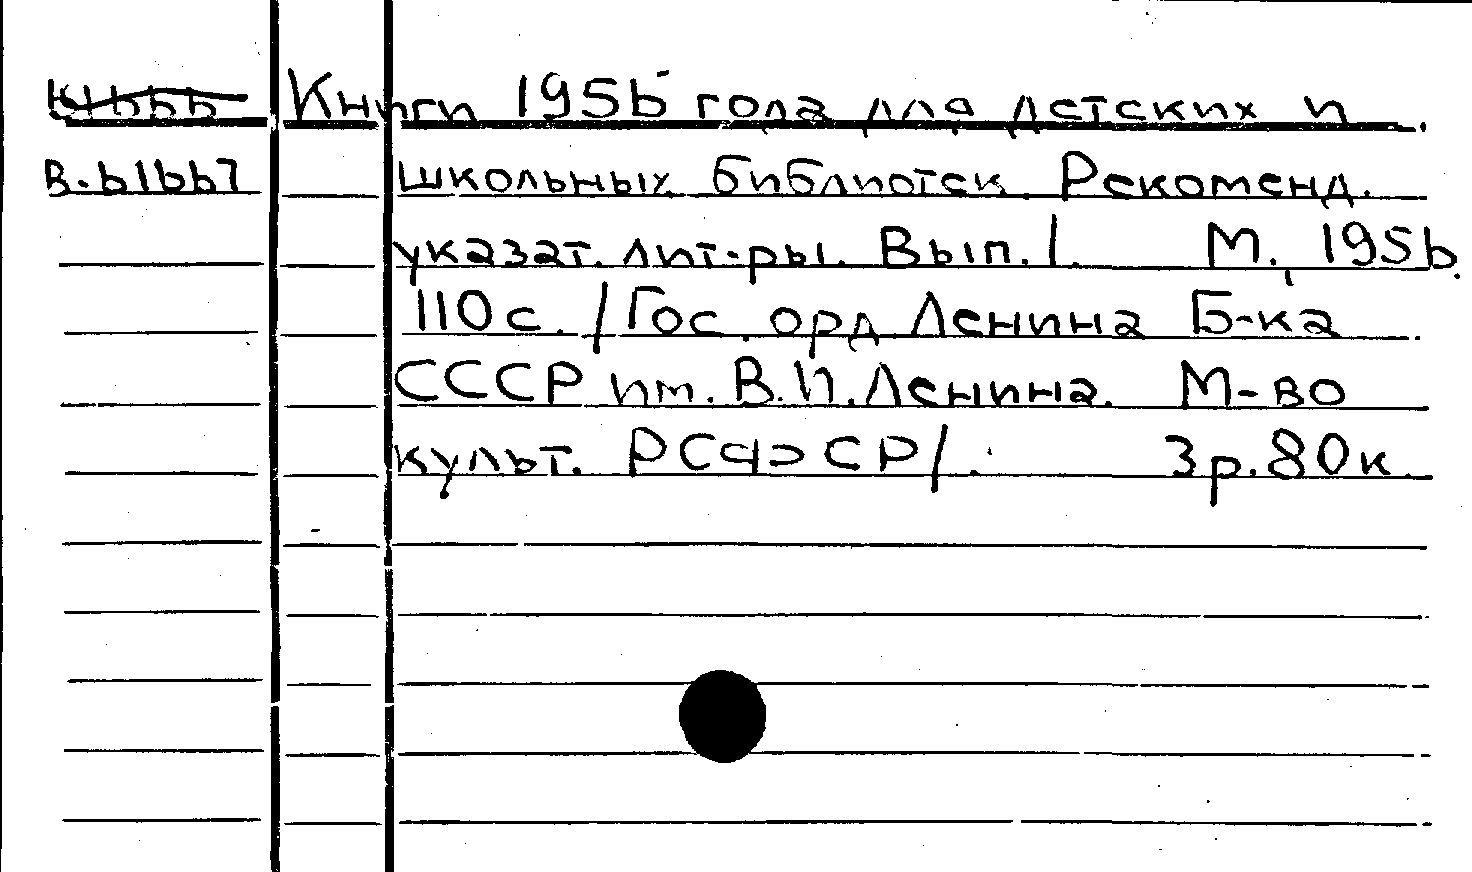 Книги 1956 года для детских и
В.61667 школьных библиотек. Рекоменд.
указат. лит-ры. Вып. 1. М., 1956.
110 с. /Гос. орд. Ленина Б-ка
СССР им. В.И. Ленина. М-во
культ. РСФСР/. 3р.80к.